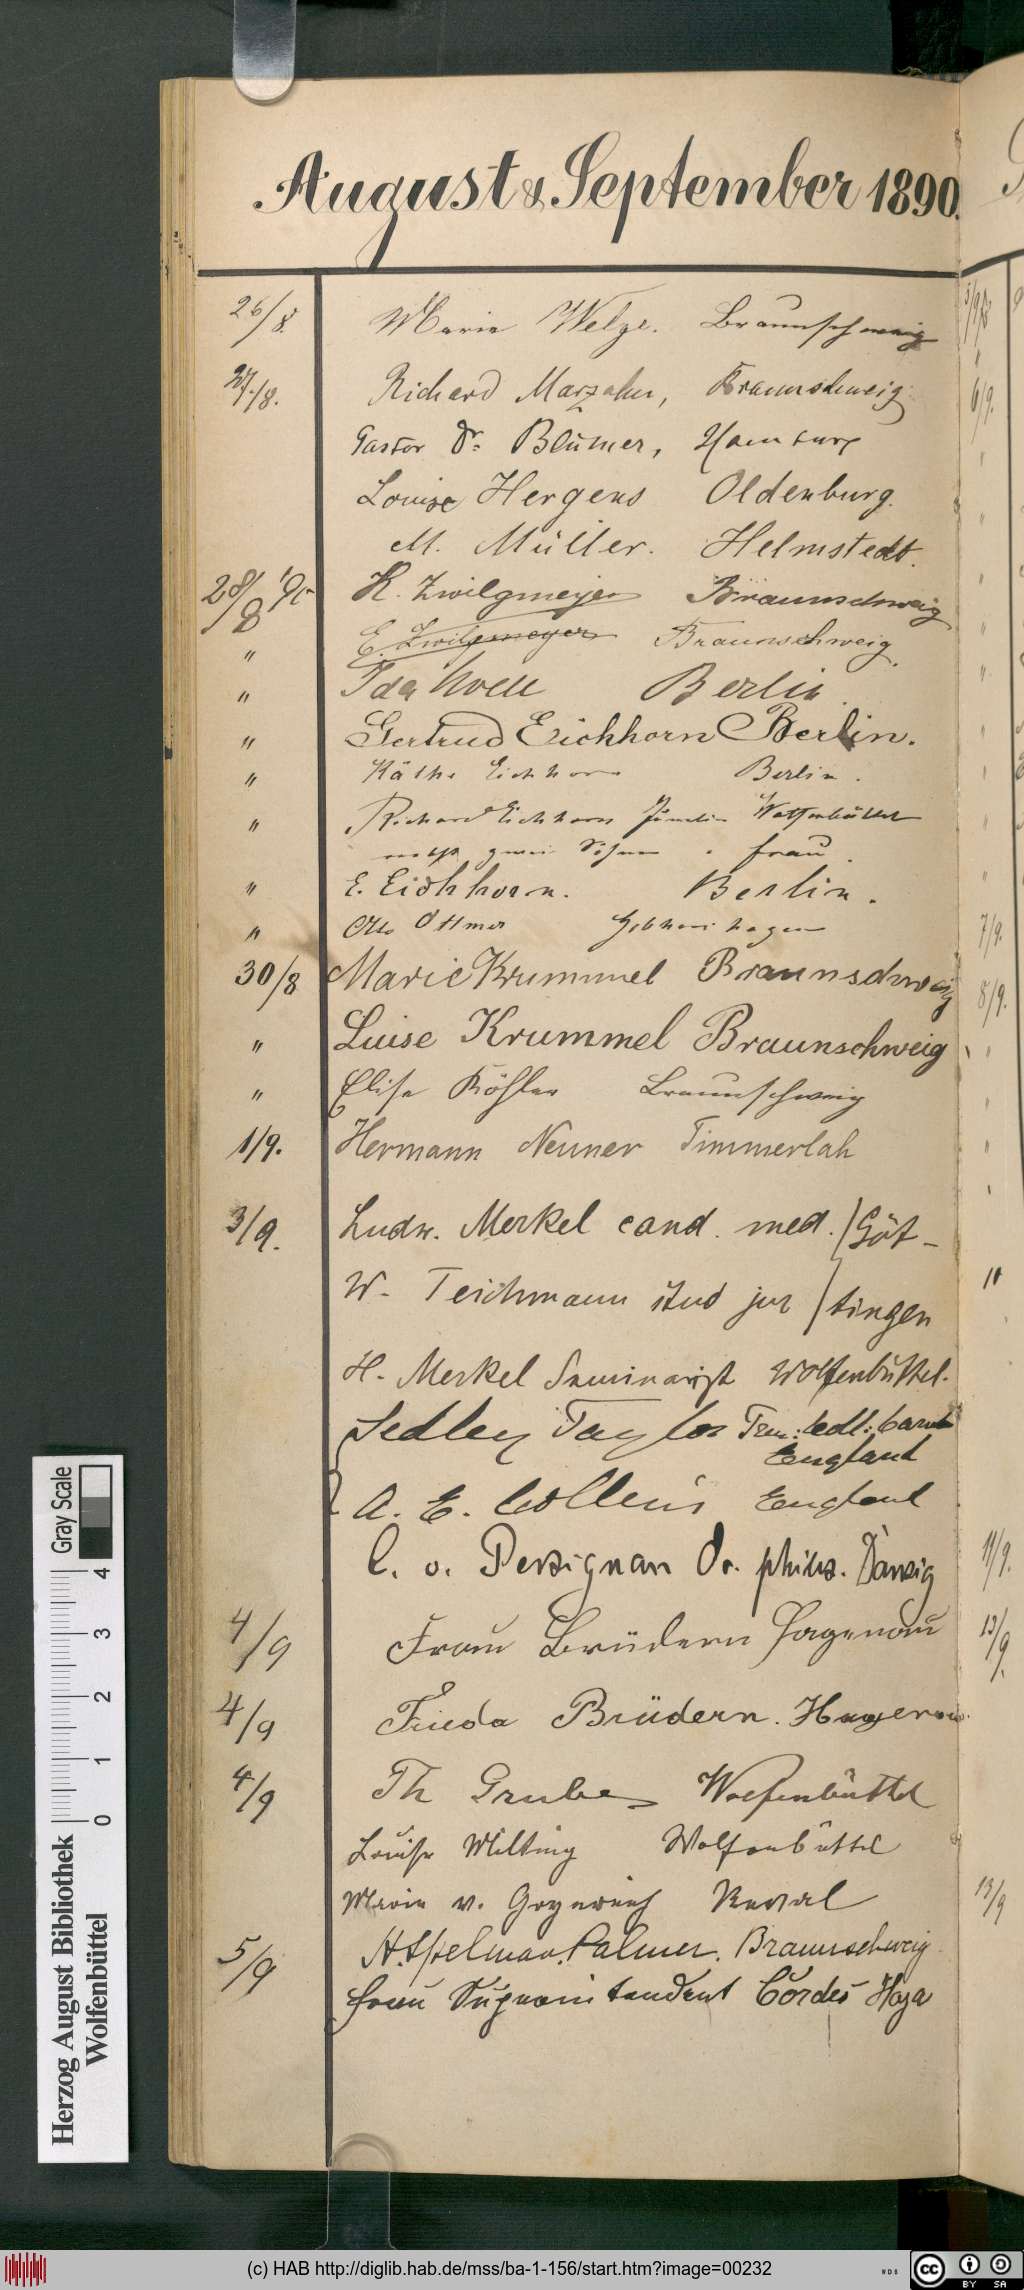 August & September 1890.
26/8. Marie Welge. Braunschweig
27./8. Richard Marzahn, Braunschweig.
Pastor Dr. Blümer, Hamburg
Louise Hergens Oldenburg.
M. Müller. Helmstedt.
28/8 '90 K. Zwilgmeyer Braunschweig
" E. Zwilgmeyer Braunschweig.
" Ida Berlin
" Gertrud Eichhorn Berlin.
" Käthe Eichhorn Berlin.
" Richard Eichhorn Wolfenbüttel
nebst zwei Söhnen Frau.
" E. Eichhorn. Berlin.
" Otto Ottmer
30/8 Marie Krummel Braunschweig
" Luise Krummel Braunschweig
" Elise Köhler Braunschweig
1/9. Hermann Neuner Timmerlah
3/9. Ludw. Merkel cand. med. / Göt-
W. Teichmann stud jur / tingen
H. Merkel Seminarist Wolfenbüttel.
Sedley Taylor Trin: Coll: Camb
England
A. E. Collens England
C. v. Persignan Dr. philos. Danzig
4/9 Frau Brüdern Hagenow
4/9 Frieda Brüdern. Hagenow.
4/9 Th Grube Wolfenbüttel
Louise Milting Wolfenbüttel
Marie v. Reval
5/9 Palmer. Braunschweig
Frau Superintendent Cordes Hoya
5/9
"
6/9.
7/9.
8/9.
"
10
11/9.
13/9.
13/9
Gray Scale
4
3
2
1
0
Herzog August Bibliothek
Wolfenbüttel
(c) HAB http://diglib.hab.de/mss/ba-1-156/start.htm?image=00232
WDB
cc BY SA